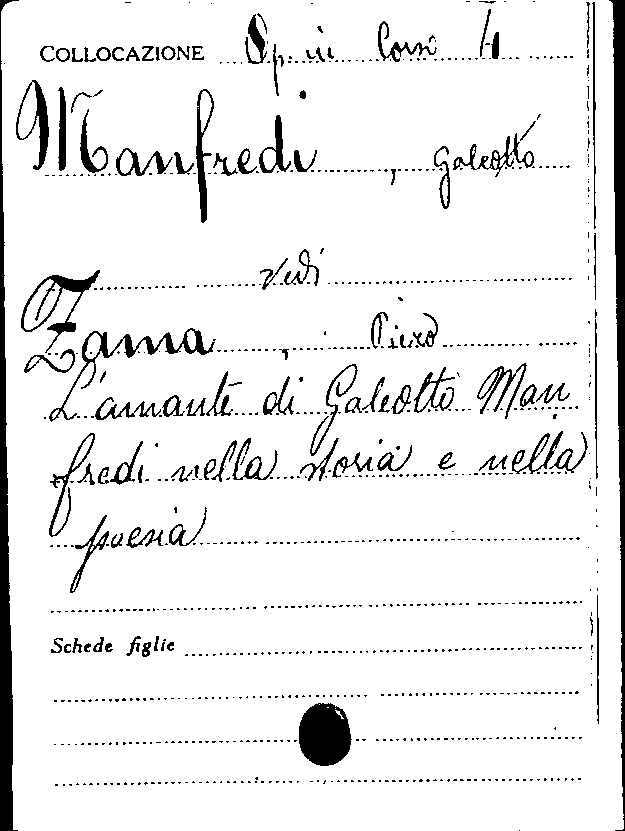 COLLOCAZIONE Op. in Cons 4
Manfredi, Galeotto
vedi
Zama, Piero
L'amante di Galeotto Man
fredi nella storia e nella
poesia
Schede figlie